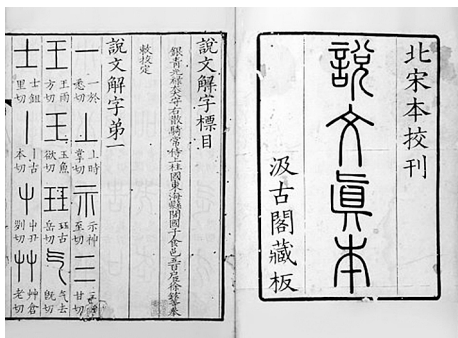 北宋本校刊
說文眞本
汲古閣藏板
說文解字標目
銀青光祿大夫守右散騎常侍上柱國東海縣開國子食邑五百戶臣徐鉉等奉
敕校定
說文解字弟一
一 一於悉切 丄 上時掌切 示 示神至切 三 三穌甘切
王 王雨方切 玉 玉魚欲切 玨 玨古岳切 气 气去旣切
士 士鉏里切 丨 丨古本切 屮 屮丑列切 艸 艸倉老切